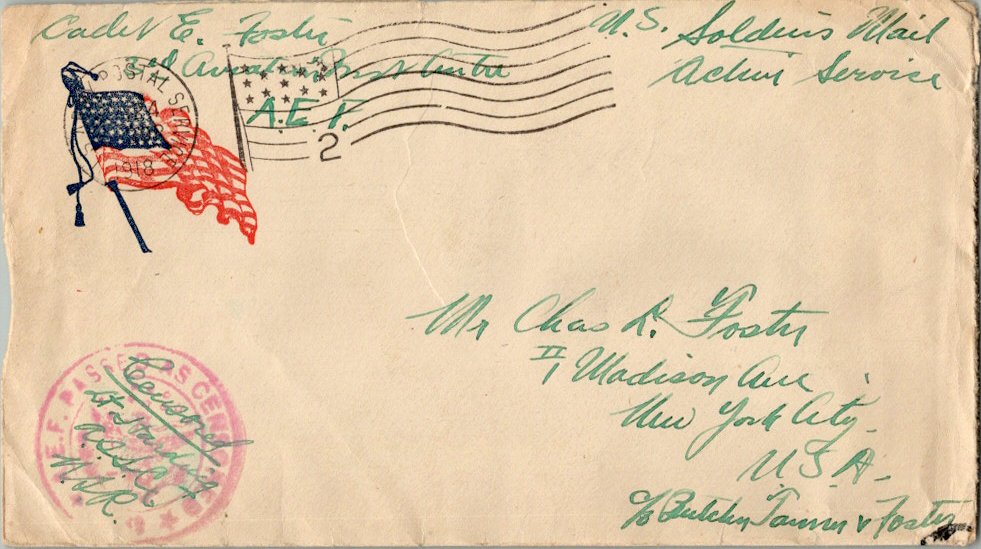 Cadet E. Foster
3rd Aviation Inst Centre
A.E.F.
U.S. Soldiers Mail
Active Service
POSTAL SERVICE
1918
2
Mr Chas R. Foster
II, Madison Ave
New York City.
U.S.A.
c/o Butcher, Tanner & Foster
A.E.F. PASSED AS CENSORED
Censored